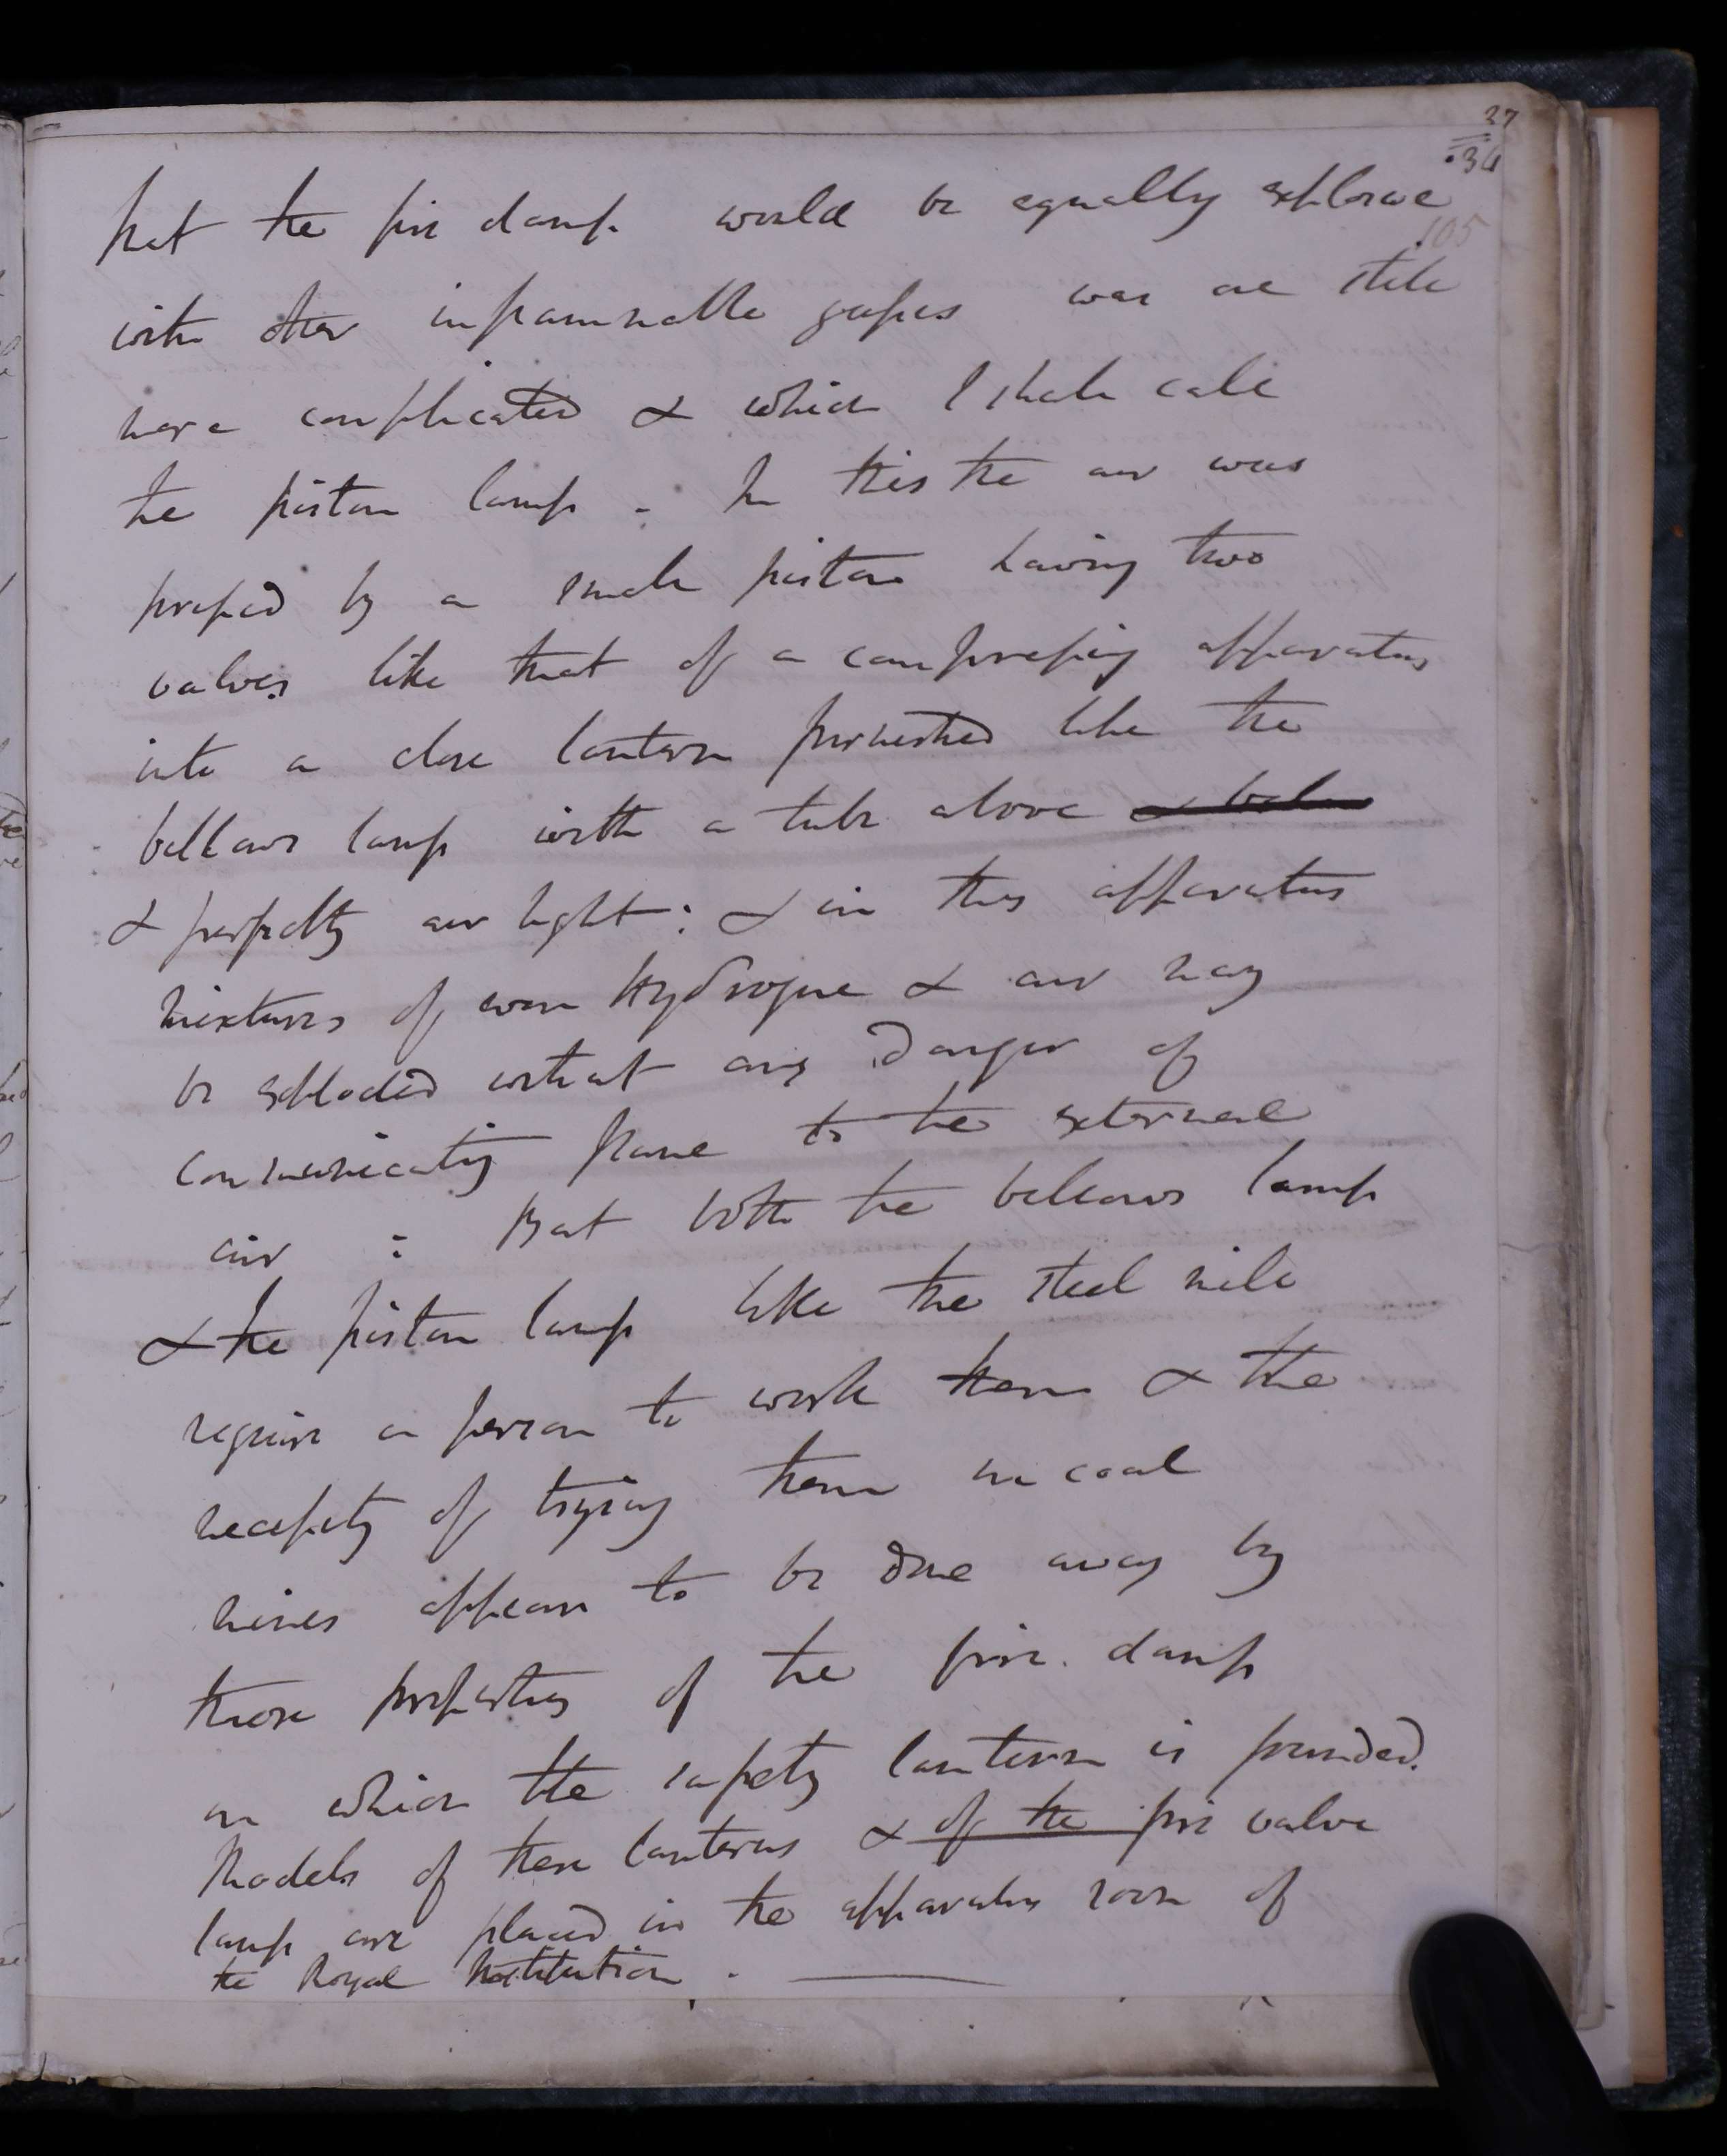 37
34
105
that the fire damp would be equally explosive
with other inflammable gasses was one still
more complicated & which I shall call
the piston lamp . In this the air was
pressed by a small piston having two
valves like that of a compressing apparatus
into a close lantern furnished like the
bellows lamp with a tube above & below
& perfectly air tight : & in this apparatus
mixtures of even Hydrogene & air may
be exploded without any danger of
communicating flame to the external
air : But both the bellows lamp
& the piston lamp like the steel mill
require a person to work them & the
necessity of trying them in coal
mines appears to be done away by
those properties of the fire damp
on which the safety lantern is founded.
Models of these lanterns & of the fire valve
lamp are placed in the apparatus room of
the Royal Institution .